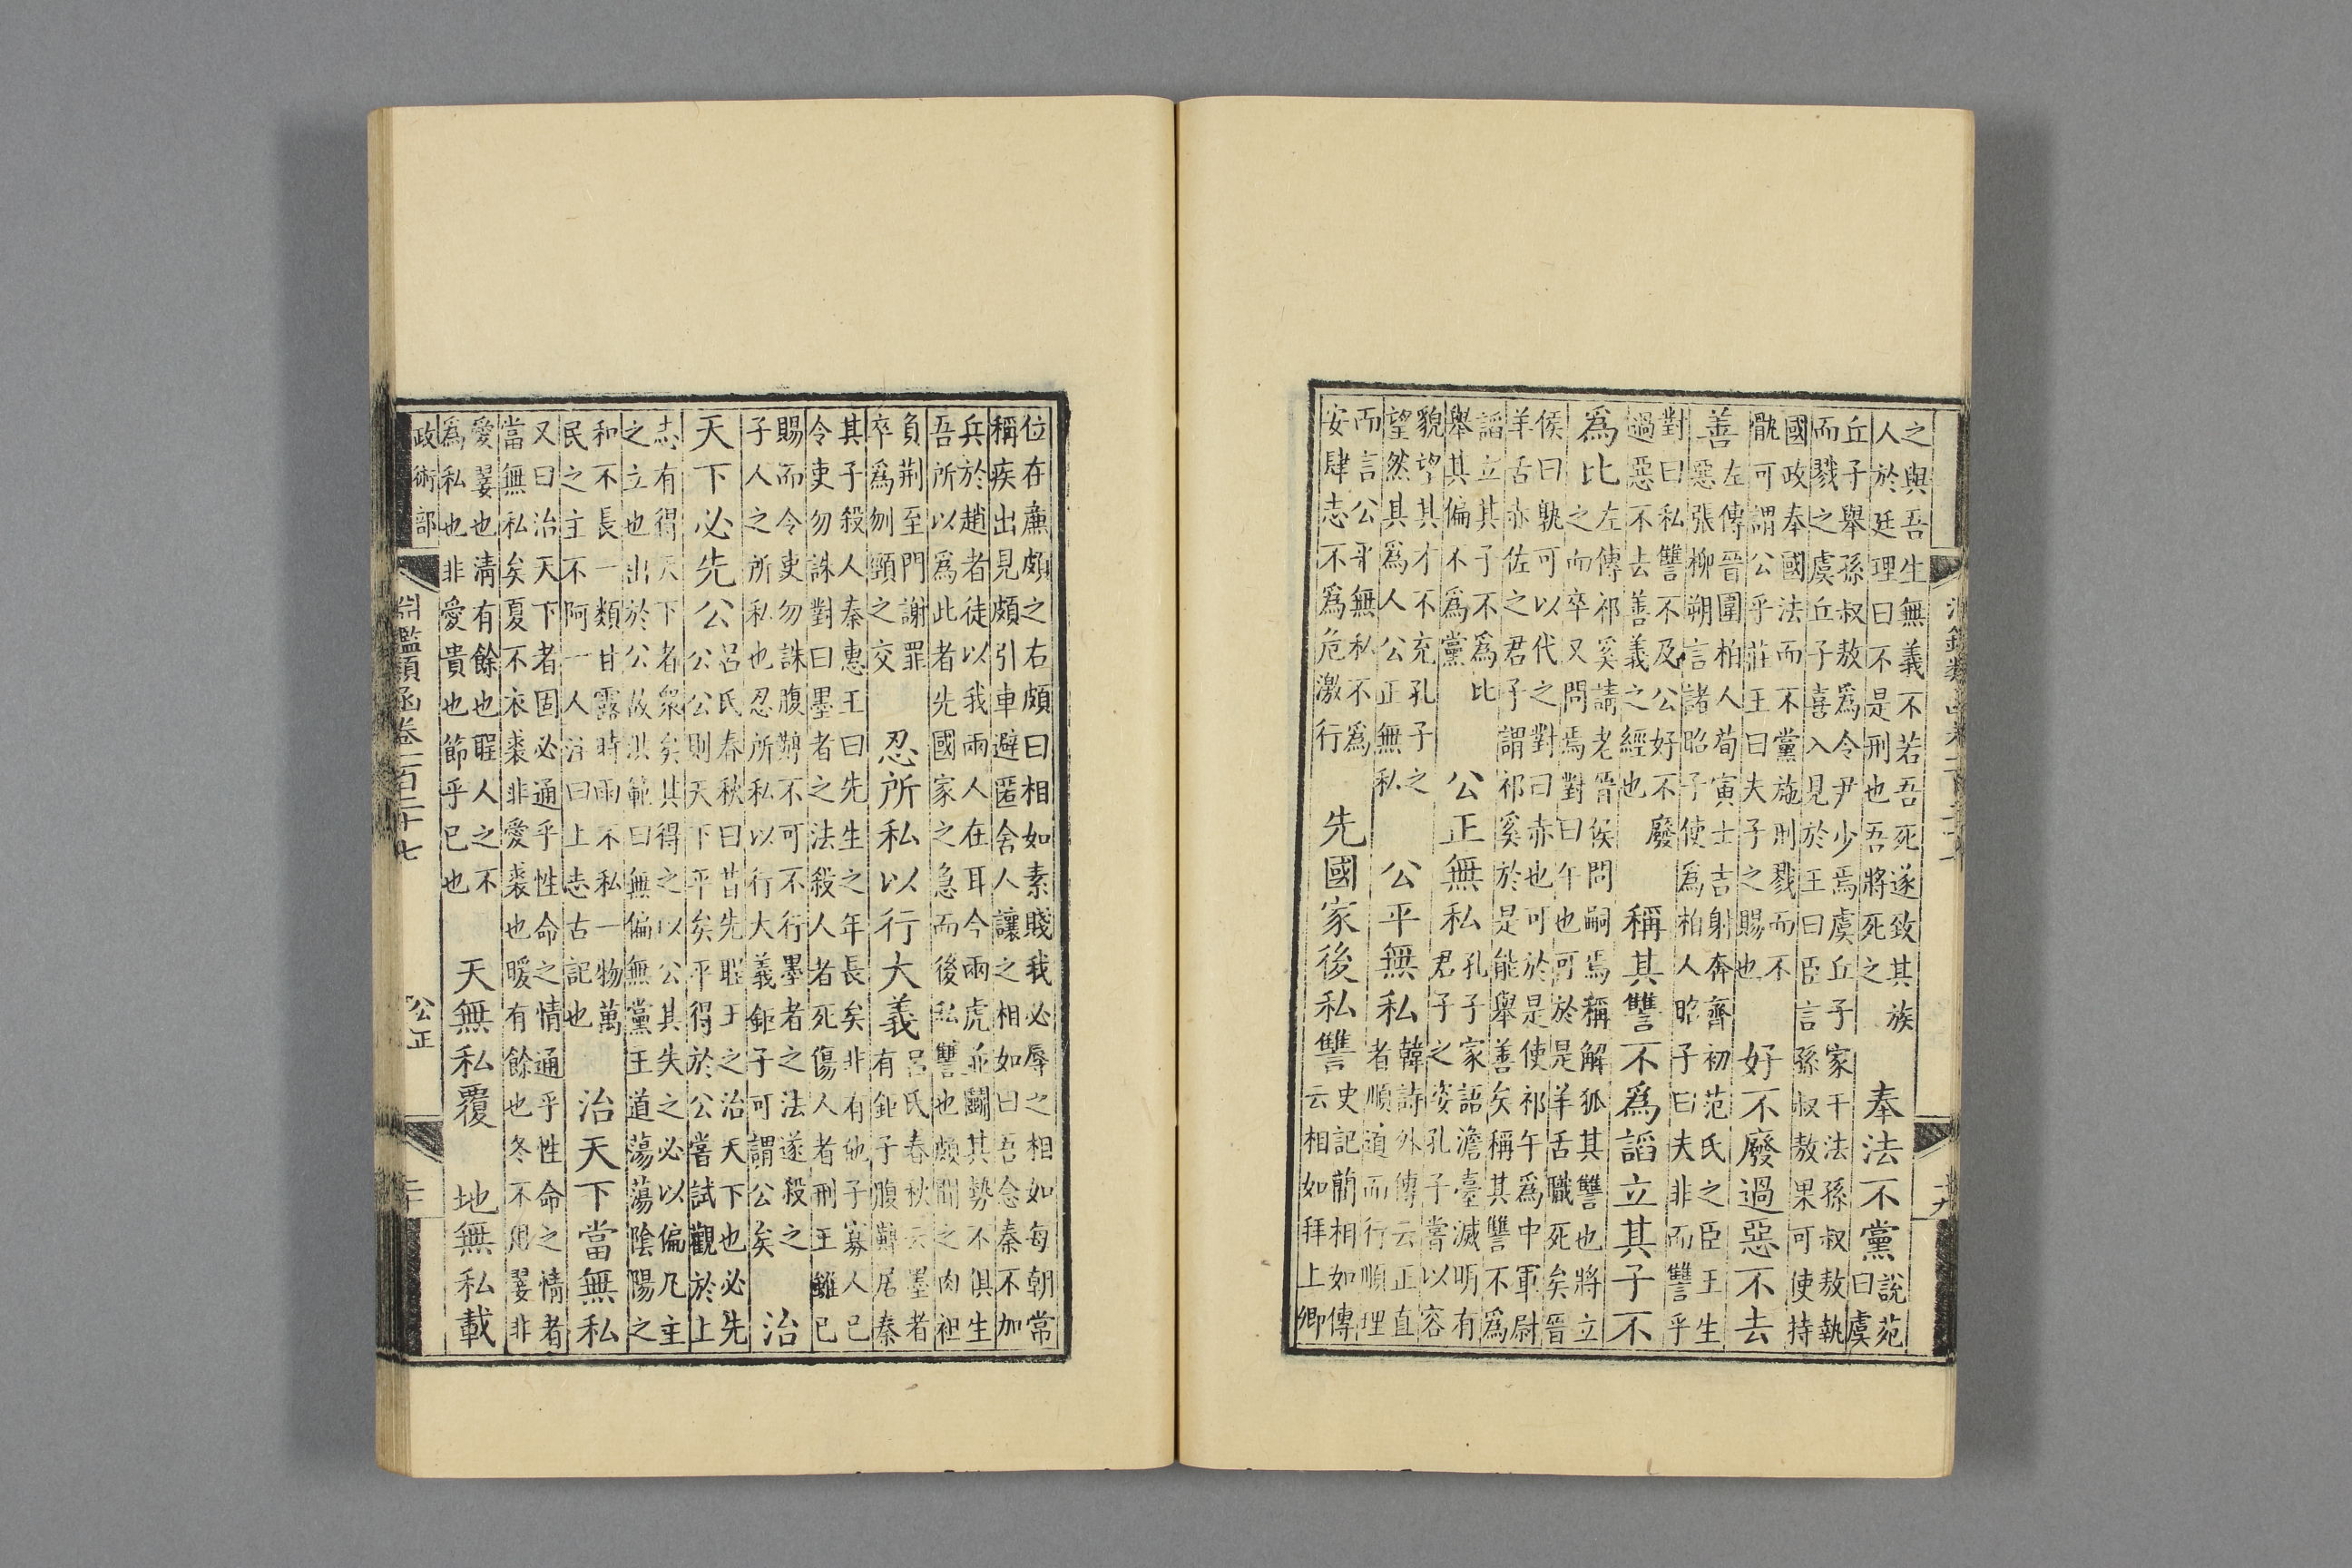 之與吾生無義不若吾死遂致其族
人於廷理曰不是刑也吾將死之
奉法不黨
說苑
曰虞
丘子舉孫叔敖爲令尹少焉虞丘子家干法孫叔敖執
而戮之虞丘子喜入見於王曰臣言孫叔敖果可使持
國政奉國法而不黨施刑戮而不
骫可謂公乎莊王曰夫子之賜也
好不廢過惡不去
善
左傳晉圍柏人荀寅士吉射奔齊初范氏之臣王生
惡張柳朔言諸昭子使爲柏人昭子曰夫非而讐乎
對曰私讐不及公好不廢
過惡不去善義之經也
稱其讐不爲謟立其子不
爲比
左傳祁奚請老晉侯問嗣焉稱解狐其讐也將立
之而卒又問焉對曰午也可於是羊舌職死矣晉
侯曰孰可以代之對曰赤也可於是使祁午爲中軍尉
羊舌赤佐之君子謂祁奚於是能舉善矣稱其讐不爲
謟立其子不爲比
舉其偏不爲黨
公正無私
孔子家語澹臺滅明有
君子之姿孔子嘗以容
貌望其才不充孔子之
望然其爲人公正無私
公平無私
韓詩外傳云正直
者順道而行順理
而言公平無私不爲
安肆志不爲危激行
先國家後私讐
史記藺相如傳
云相如拜上卿
位在廉頗之右頗曰相如素賤我必辱之相如每朝常
稱疾出見頗引車避匿舍人讓之相如曰吾念秦不加
兵於趙者徒以我兩人在耳今兩虎並鬬其勢不俱生
吾所以爲此者先國家之急而後私讐也頗聞之肉袒
負荆至門謝罪
卒爲刎頸之交
忍所私以行大義
呂氏春秋云墨者
有鉅子腹䵍居秦
其子殺人秦惠王曰先生之年長矣非有他子寡人已
令吏勿誅對曰墨者之法殺人者死傷人者刑王雖已
賜而令吏勿誅腹䵍不可不行墨者之法遂殺之
子人之所私也忍所私以行大義鉅子可謂公矣
治
天下必先公
呂氏春秋曰昔先聖王之治天下也必先
公公則天下平矣平得於公嘗試觀於上
志有得天下者衆矣其得之以公其失之必以偏凡主
之立也出於公故洪範曰無偏無黨王道蕩蕩陰陽之
和不長一類甘露時雨不私一物萬
民之主不阿一人注曰上志古記也
治天下當無私
又曰治天下者固必通乎性命之情通乎性命之情者
當無私矣夏不衣裘非愛裘也暖有餘也冬不用翣非
愛翣也清有餘也聖人之不
爲私也非愛貴也節乎已也
天無私覆
地無私載
政術部
淵鑑類函卷一百二十七
公正
二十